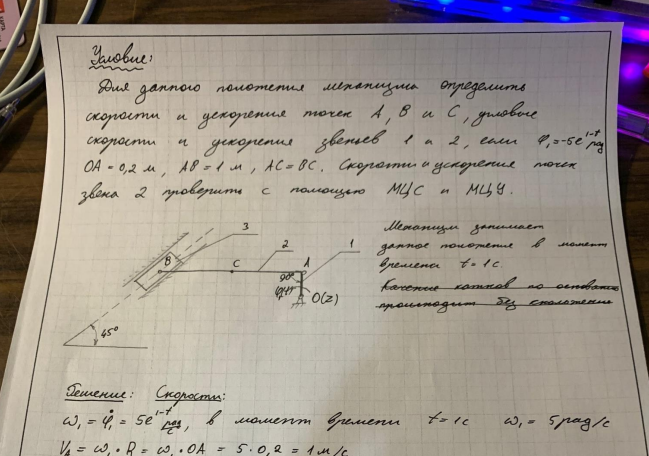 Условие:
Для данного положения механизма определить
скорости и ускорения точек A, B и C, угловые
скорости и ускорения звеньев 1 и 2, если φ₁=-5e^{1-t} рад
OA = 0,2 м, AB = 1 м, AC = BC. Скорости и ускорения точек
звена 2 проверить с помощью МЦС и МЦУ.
3
2
1
B
C
A
90°
O(z)
45°
Механизм занимает
данное положение в момент
времени t = 1 c.
Качение катков по основанию
происходит без скольжения
Решение: Скорости:
ω₁ = φ̇₁ = 5e^{1-t} рад/c, в момент времени t = 1c ω₁ = 5 рад/с
V_A = ω₁ · R = ω₁ · OA = 5 · 0,2 = 1 м/с